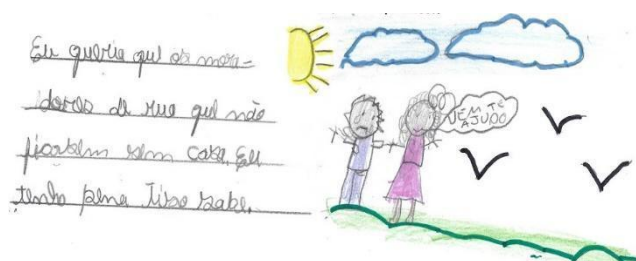 Eu queria qui os mora-
dores de rua qui não
ficasem sem casa. Eu
tenho pena tiso sabe.
VEM TE
AJUDO